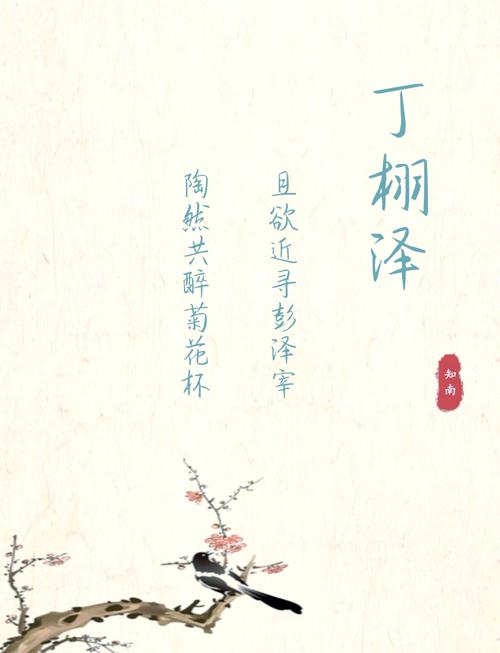 丁栩泽
且欲近寻彭泽宰
陶然共醉菊花杯
知南